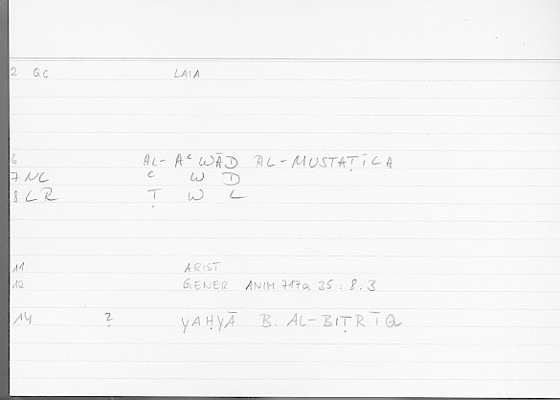 2 QC LAIA
6 AL-AᶜWĀD AL-MUSTAṬĪLA
7 NL ᶜ W D
8 LR Ṭ W L
11 ARIST
12 GENER ANIM 717a 35 : 8.3
14 ? YAḤYĀ B. AL-BIṬRĪQ